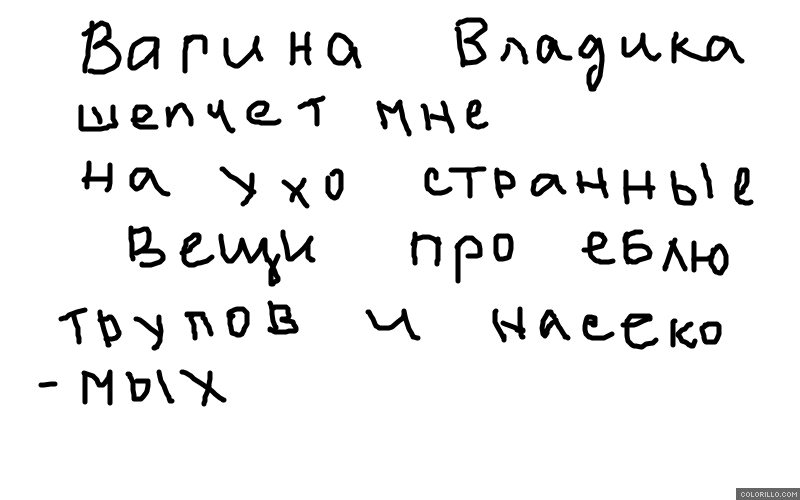 Вагина Владика
шепчет мне
на ухо странные
вещи про еблю
трупов и насеко
-мых
COLORILLO.COM